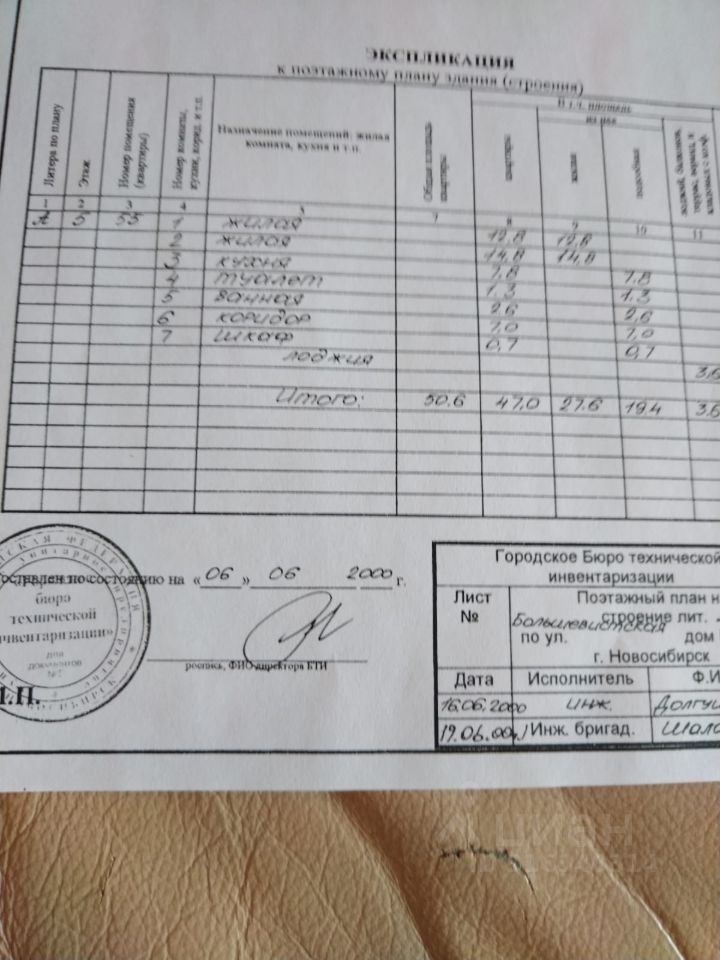 ЭКСПЛИКАЦИЯ
к поэтажному плану здания (строения)
Литера по плану
Этаж
Номер помещения (квартиры)
Номер комнаты, кухни, корид. и т.п.
Назначение помещений: жилая комната, кухня и т.п.
Общая площадь квартиры
В т.ч. площадь
из нее
квартиры
жилая
подсобная
лоджий, балконов,
1 2 3 4 5 7 8 9 10 11
А 5 55 1 жилая 12,8 12,8
2 жилая 14,8 14,8
3 кухня 7,8 7,8
4 туалет 1,3 1,3
5 ванная 2,6 2,6
6 коридор 7,0 7,0
7 шкаф 0,7 0,7
лоджия 3,6
Итого: 50,6 47,0 27,6 19,4 3,6
составлен по состоянию на «06» 06 2000 г.
бюро
технической
инвентаризации»
для
документов
роспись, ФИО директора БТИ
М.П.
Городское Бюро технической
инвентаризации
Лист
№
Поэтажный план н
строение лит.
Большевистская
по ул. дом
г. Новосибирск
Дата Исполнитель Ф.И
16.06.2000 инж. Долгуш
19.06.00г. Инж. бригад.
циан